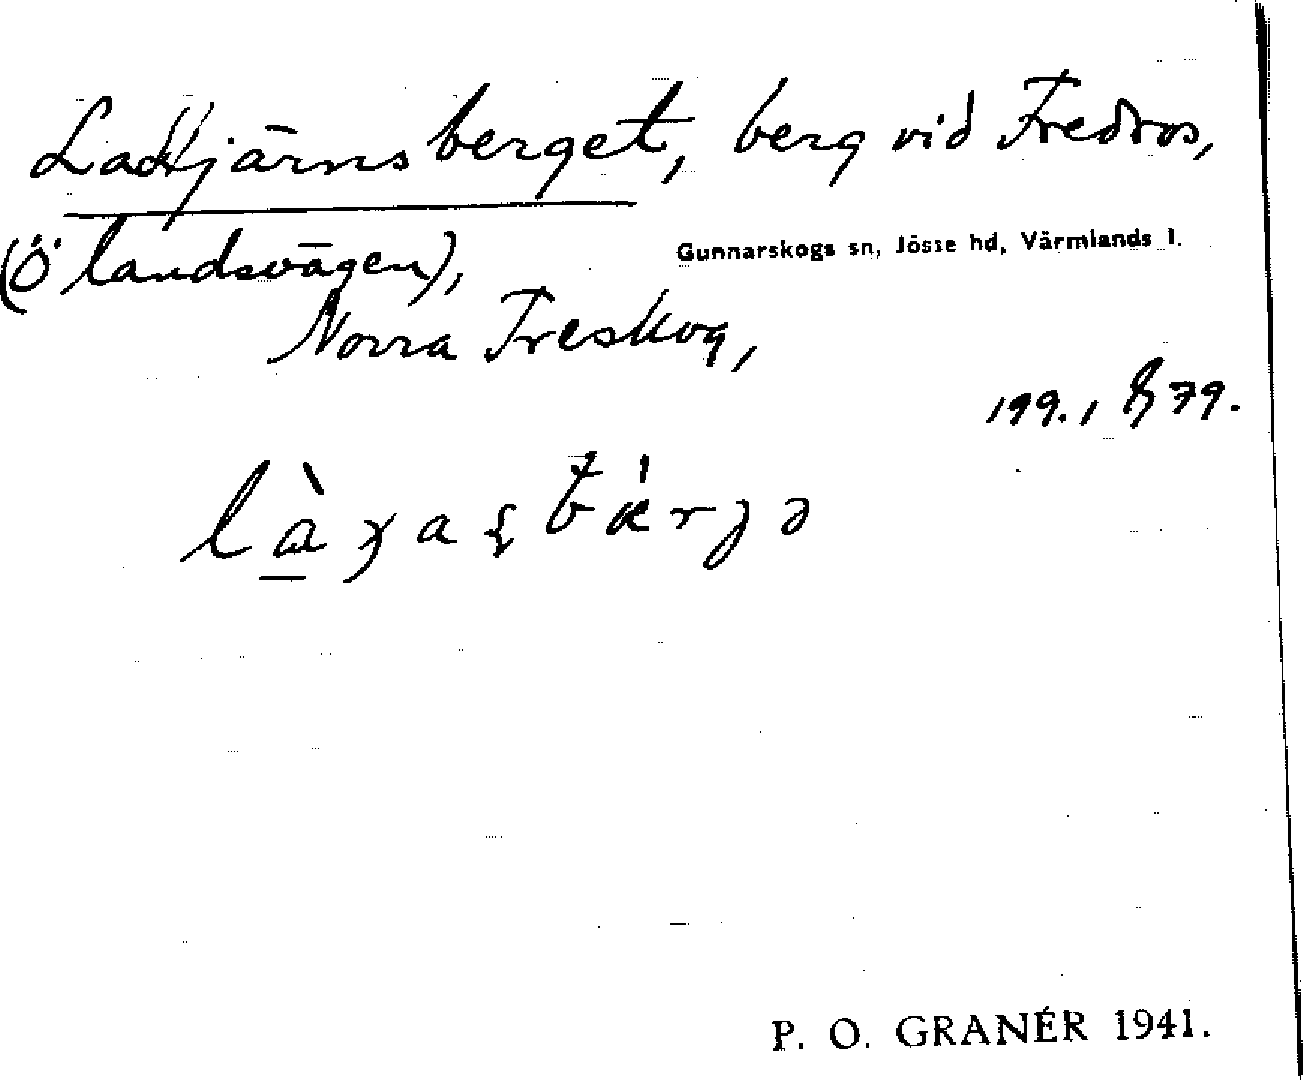 Ladtjärnsberget, berg vid Fredros,
(Ö landsvägen),
Gunnarskogs sn, Jösse hd, Värmlands l.
Norra Treskog,
199. 1 79.
P. O. GRANÉR 1941.